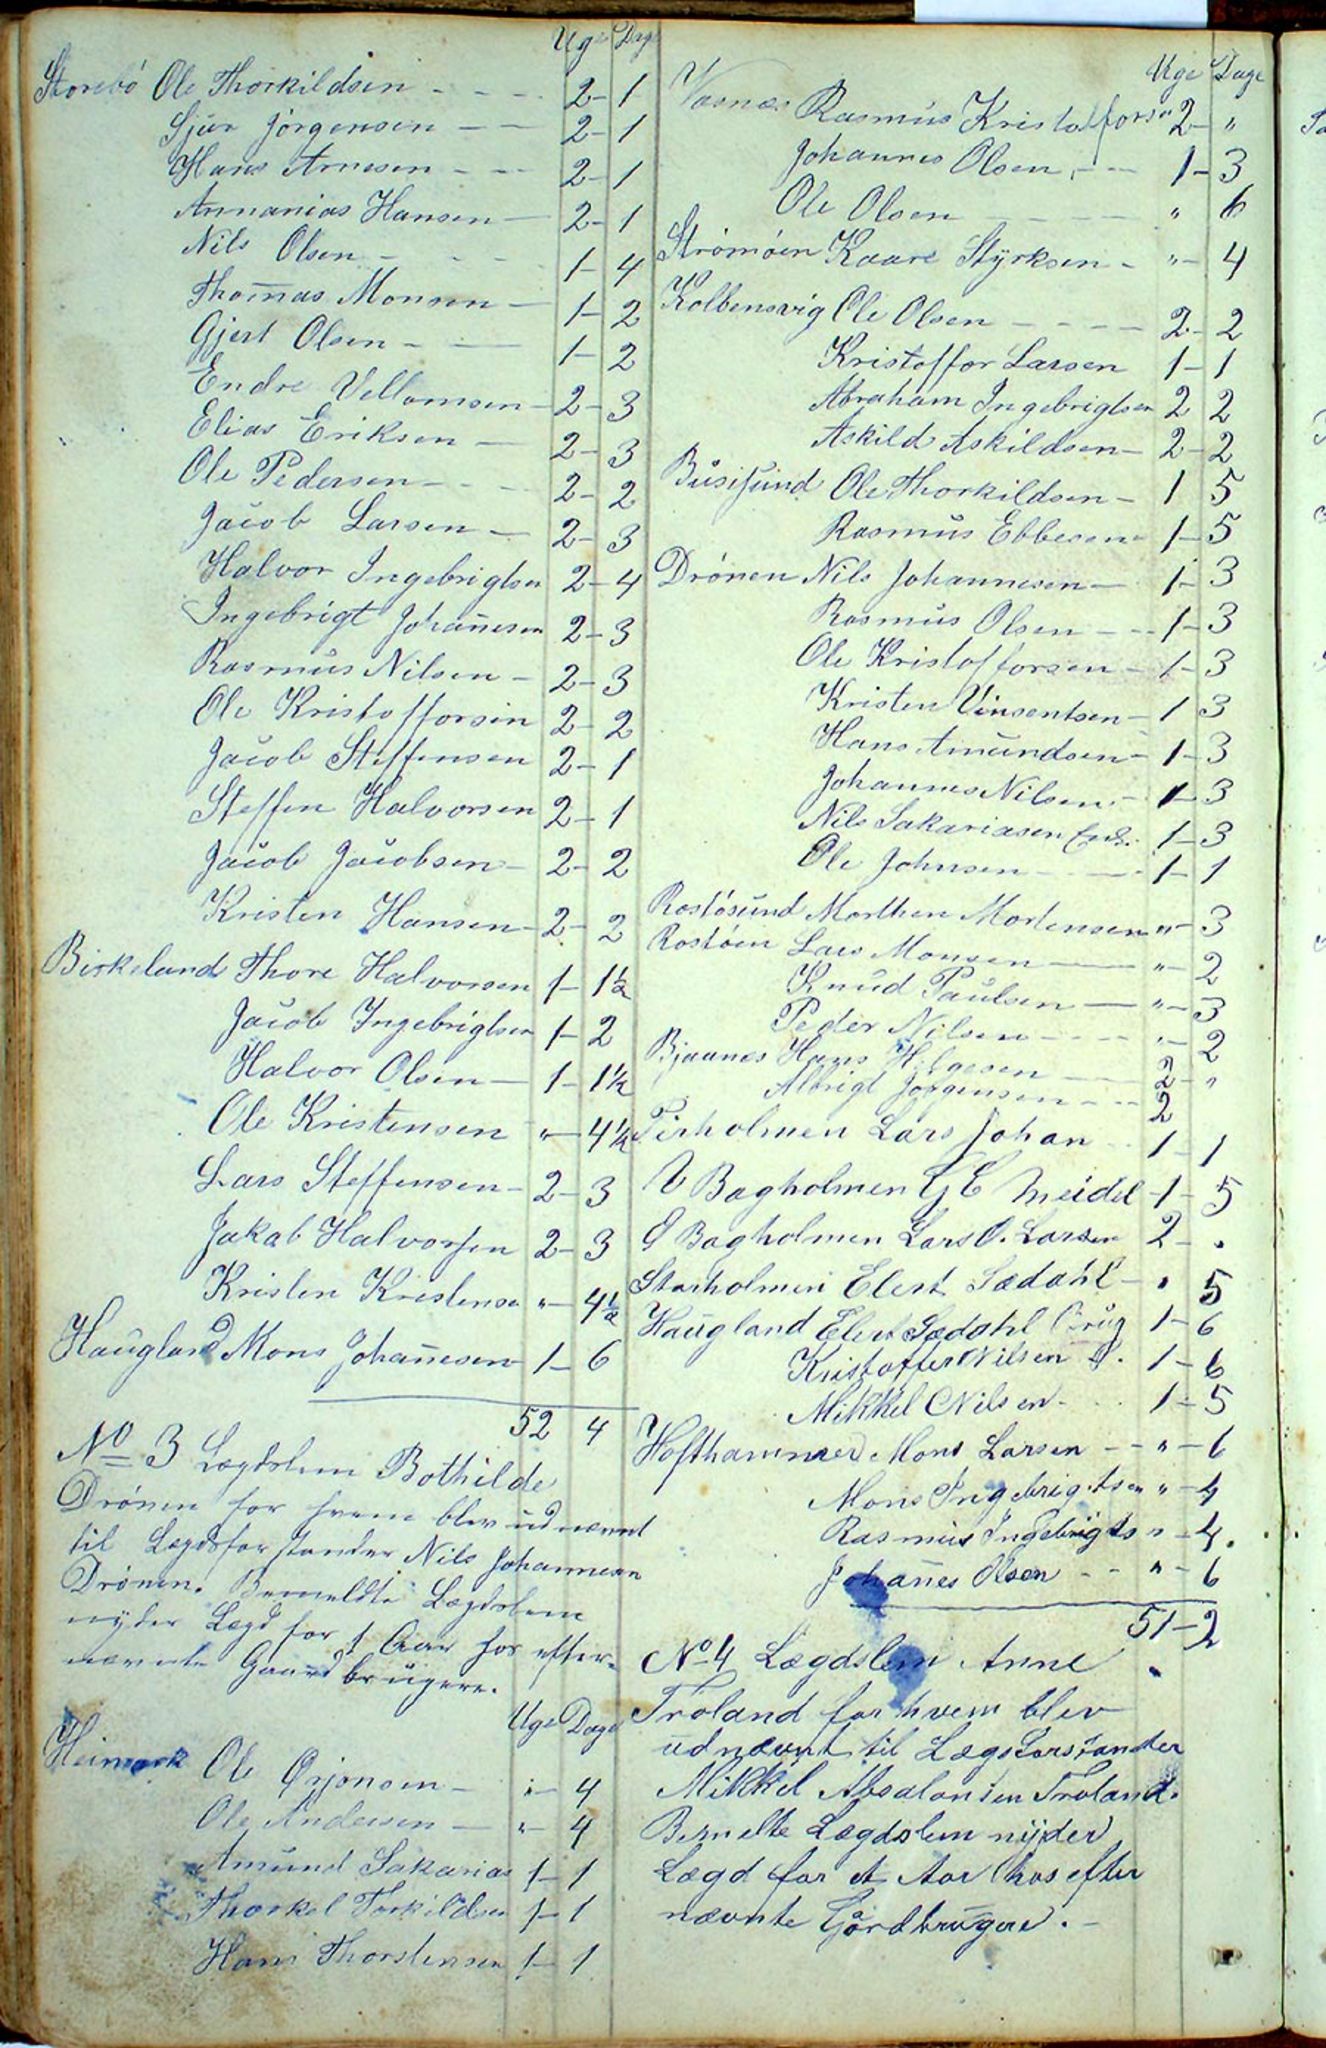 Uge Dage
Storebö Ole Thorkildsen - - - 2 - 1
Sjur Jörgensen - - 2 - 1
Hans Arnesen - - - 2 - 1
Annanias Hansen - 2 - 1
Nils Olsen - - - 1 - 4
Thom̄as Monsen - 1 - 2
Gjert Olsen - - 1 - 2
Endre Vellomsen - 2 - 3
Elias Eriksen - 2 - 3
Ole Pedersen - - - 2 - 2
Jacob Larsen - 2 - 3
Halvor Ingebrigtsen 2 - 4
Ingebrigt Johan̄esen 2 - 3
Rasmus Nilsen - 2 - 3
Ole Kristofforsen 2 - 2
Jacob Steffensen 2 - 1
Steffen Halvorsen 2 - 1
Jacob Jacobsen - 2 - 2
Kristen Hansen - 2 - 2
Birkeland Thore Halvorsen 1 - 1½
Jacob Ingebrigtsen 1 - 2
Halvor Olsen - 1 - 1½
Ole Kristensen " - 4½
Lars Steffensen - 2 - 3
Jakab Halvorsen 2 - 3
Kristen Kristensen " - 4½
Haugland Mons Johan̄esen 1 - 6
52 4
No 3 Lægdslem Bothilde
Drönen for hvem blev udnævnt
til Lægdsforstander Nils Johannesen
Drönen. Bemeldte Lægdslem
nyder Lægd for 1 Aar hos efter-
nævnte Gaardbrugere.
Uge Dage
Heimark Ole Ørjansen - " - 4
Ole Andersen - " - 4
Amund Sakarias 1 - 1
Thorkel Torkildsen 1 - 1
Hans Thorstensen 1 - 1
Uge Dage
Vasnes Rasmus Kristofforsn 2 - "
Johannes Olsen - - 1 - 3
Ole Olsen - - - " 6
Strömöen Kaare Styrksen - " - 4
Kolbensvig Ole Olsen - - - - 2 - 2
Kristoffor Larsen 1 - 1
Abraham Ingebrigtsen 2 2
Askild Askildsen - 2 - 2
Busesund Ole Thorkildsen - 1 5
Rasmus Ebbesen 1 - 5
Drönen Nils Johannesen - 1 - 3
Rasmus Olsen - - 1 - 3
Ole Kristofforsen - 1 - 3
Kristen Vinsentsen - 1 3
Hans Amundsen - 1 - 3
Johannes Nilsen - 1 - 3
Nils Sakariasen Enk. 1 - 3
Ole Johnsen - - - 1 - 1
Rostösund Morthen Mortensen " - 3
Rostöen Lars Monsen - " - 2
Knud Paulsen - " - 3
Peder Nilsen - - - " - 2
Bjaanes Hans Helgesen - 2 - "
Albrigt Jörgensen - - 2
Pirholmen Lars Johan - - 1 - 1
V Bagholmen G E Meidel - 1 - 5
Ø Bagholmen Lars O. Larsen 2 - "
Storholmen Elert Sædahl - " 5
Haugland Elert Sædahl Brug 1 - 6
Kristoffer Nilsen 1 - 6
Mikkel Nilsen - - - 1 - 5
Hofthammer Mons Larsen - - " - 6
Mons Ingebrigtsen " - 4
Rasmus Ingebrigts " - 4.
Johan̄es Olsen - - " - 6
51 - 2
No 4 Lægdslem Anne
Troland for hvem blev
udnævnt til Lægsforstander
Mikkel Absalonsen Troland.
Bemelte Lægdslem nyder
Lægd for et Aar hos efter
nævnte Gårdbrugere. -